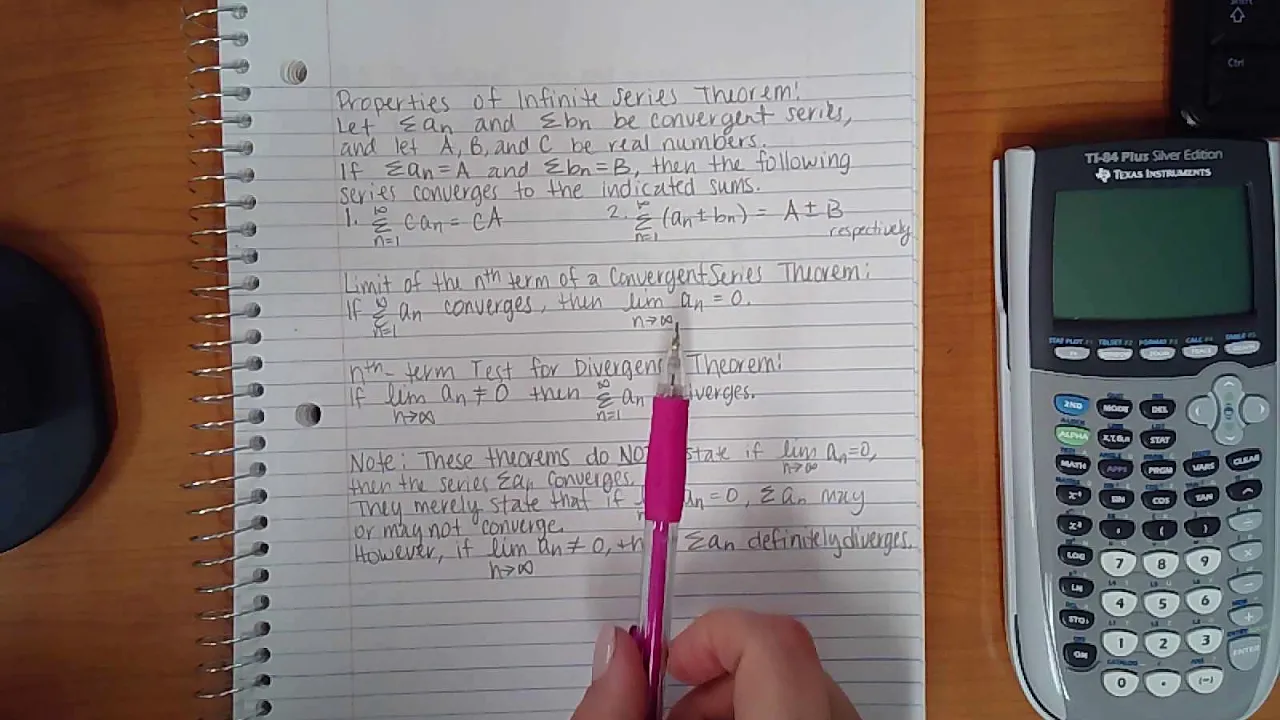 Properties of Infinite Series Theorem:
Let Σan and Σbn be convergent series,
and let A, B, and C be real numbers.
If Σan = A and Σbn = B, then the following
series converges to the indicated sums.
1. ∞Σn=1 can = cA 2. ∞Σn=1 (an ± bn) = A ± B
respectively
Limit of the nth term of a Convergent Series Theorem:
If ∞Σn=1 an converges, then lim n→∞ an = 0.
nth-term Test for Theorem:
If lim n→∞ an ≠ 0 then ∞Σn=1 an
Note: These theorems do state if lim n→∞ an = 0,
then the series Σan converges.
They merely state that if an = 0, Σan may
or may not converge.
However, if lim n→∞ an ≠ 0, Σan definitely diverges.
TI-84 Plus Silver Edition
TEXAS INSTRUMENTS
STAT PLOT F1 TBLSET F2 FORMAT F3 CALC F4 TABLE F5
Y= WINDOW ZOOM TRACE GRAPH
2ND MODE DEL
ALPHA X,T,θ,n STAT
MATH APPS PRGM VARS CLEAR
SIN COS TAN ^
x² , ( ) ÷
LOG 7 8 9 ×
LN 4 5 6 −
STO 1 2 3 +
ON 0 . (-) ENTER
Shift
Ctrl